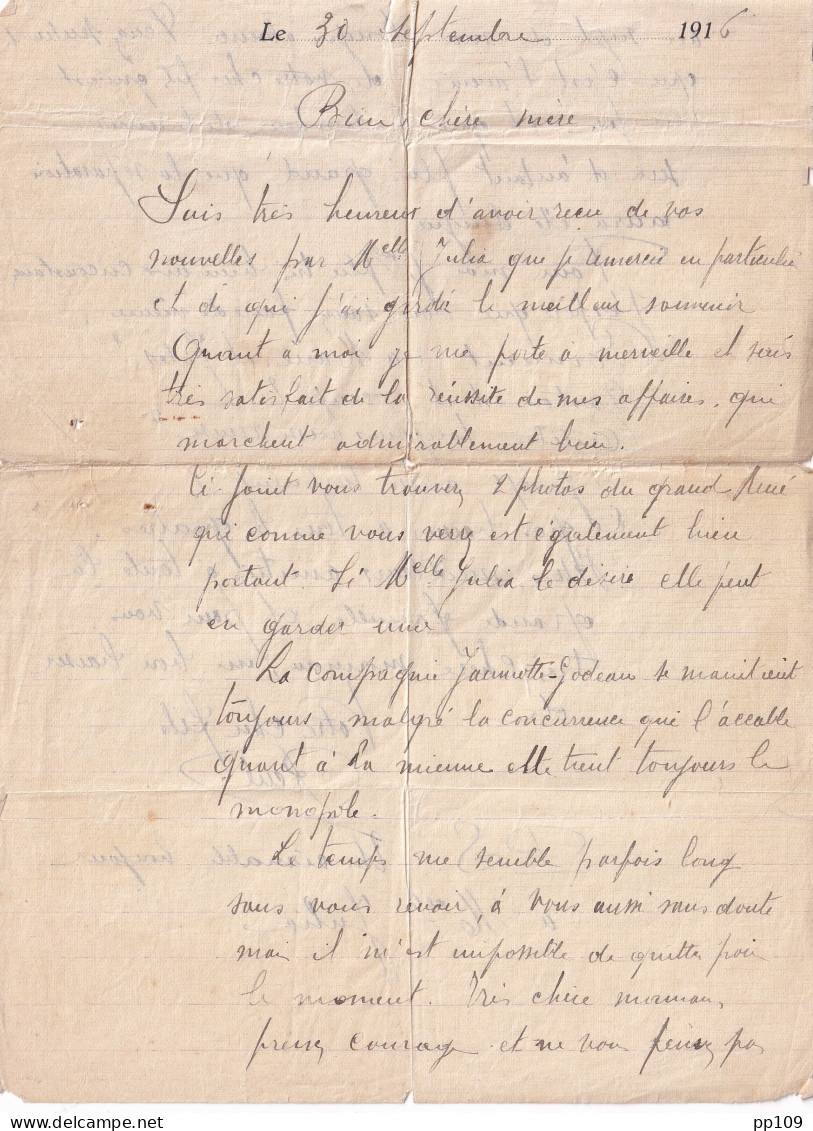 Le 30 septembre 1916
Bien chère mère,
Suis très heureux d'avoir reçu de vos
nouvelles par Melle Julia que je remercie en particulier
et de qui j'ai gardé le meilleur souvenir
Quant à moi je me porte à merveille et
très satisfait de la réussite de mes affaires, qui
marchent admirablement bien.
Ci-Joint vous trouverez 2 photos du grand René
qui comme vous verrez est également bien
portant. Si Melle Julia le désire elle peut
en garder une
La compagnie Jannotte-Godeau se maintient
toujours, malgré la concurrence qui l'accable
quant à la mienne elle tient toujours le
monopole.
Le temps me semble parfois long
sans vous revoir, à vous aussi sans doute
mais il m'est impossible de quitter pour
le moment. Très chère maman,
prenez courage et ne vous pas
pp109